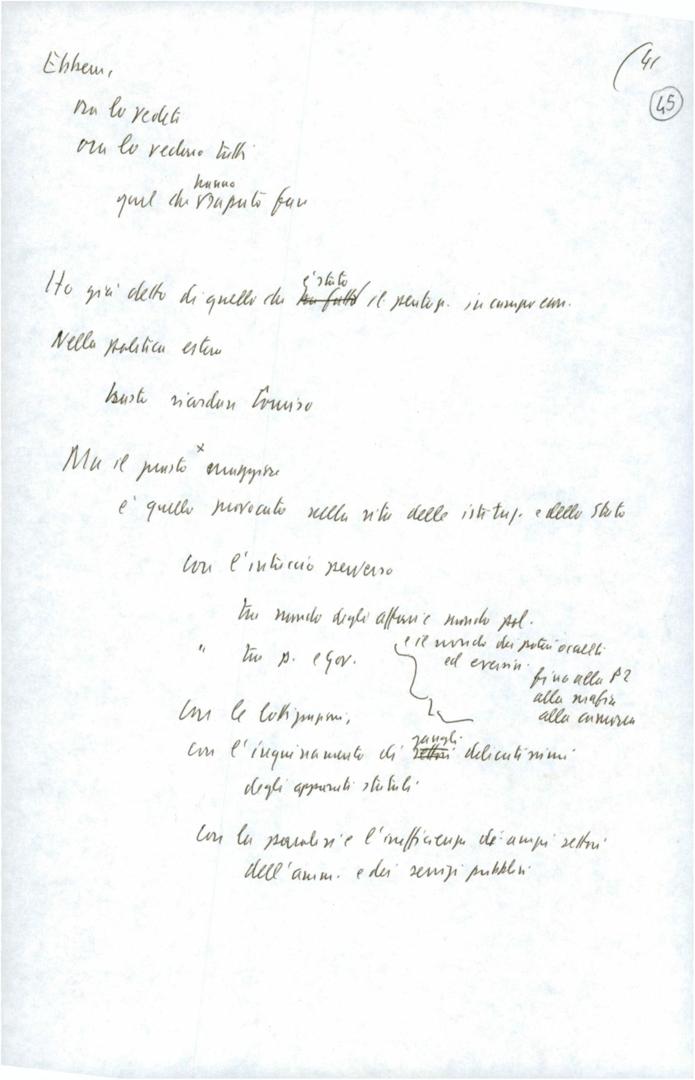 41
45
Ebbene,
ora lo vedete
ora lo vedono tutti
hanno
quel che saputo fare
è stato
Ho già detto di quello che ha fatto il pentap. in campo econ.
Nella politica estera
basta ricordare Comiso
Ma il guasto x maggiore
è quello provocato nella vita delle istituz. e dello Stato
con l'intreccio perverso
tra mondo degli affari e mondo pol.
" tra p. e gov.
e il mondo dei poteri occulti
ed eversivi
fino alla P2
alla mafia
alla camorra
con le lottizzazioni,
gangli
con l'inquinamento di settori delicatissimi
degli apparati statali
con la paralisi e l'inefficienza di ampi settori
dell'amm. e dei servizi pubblici